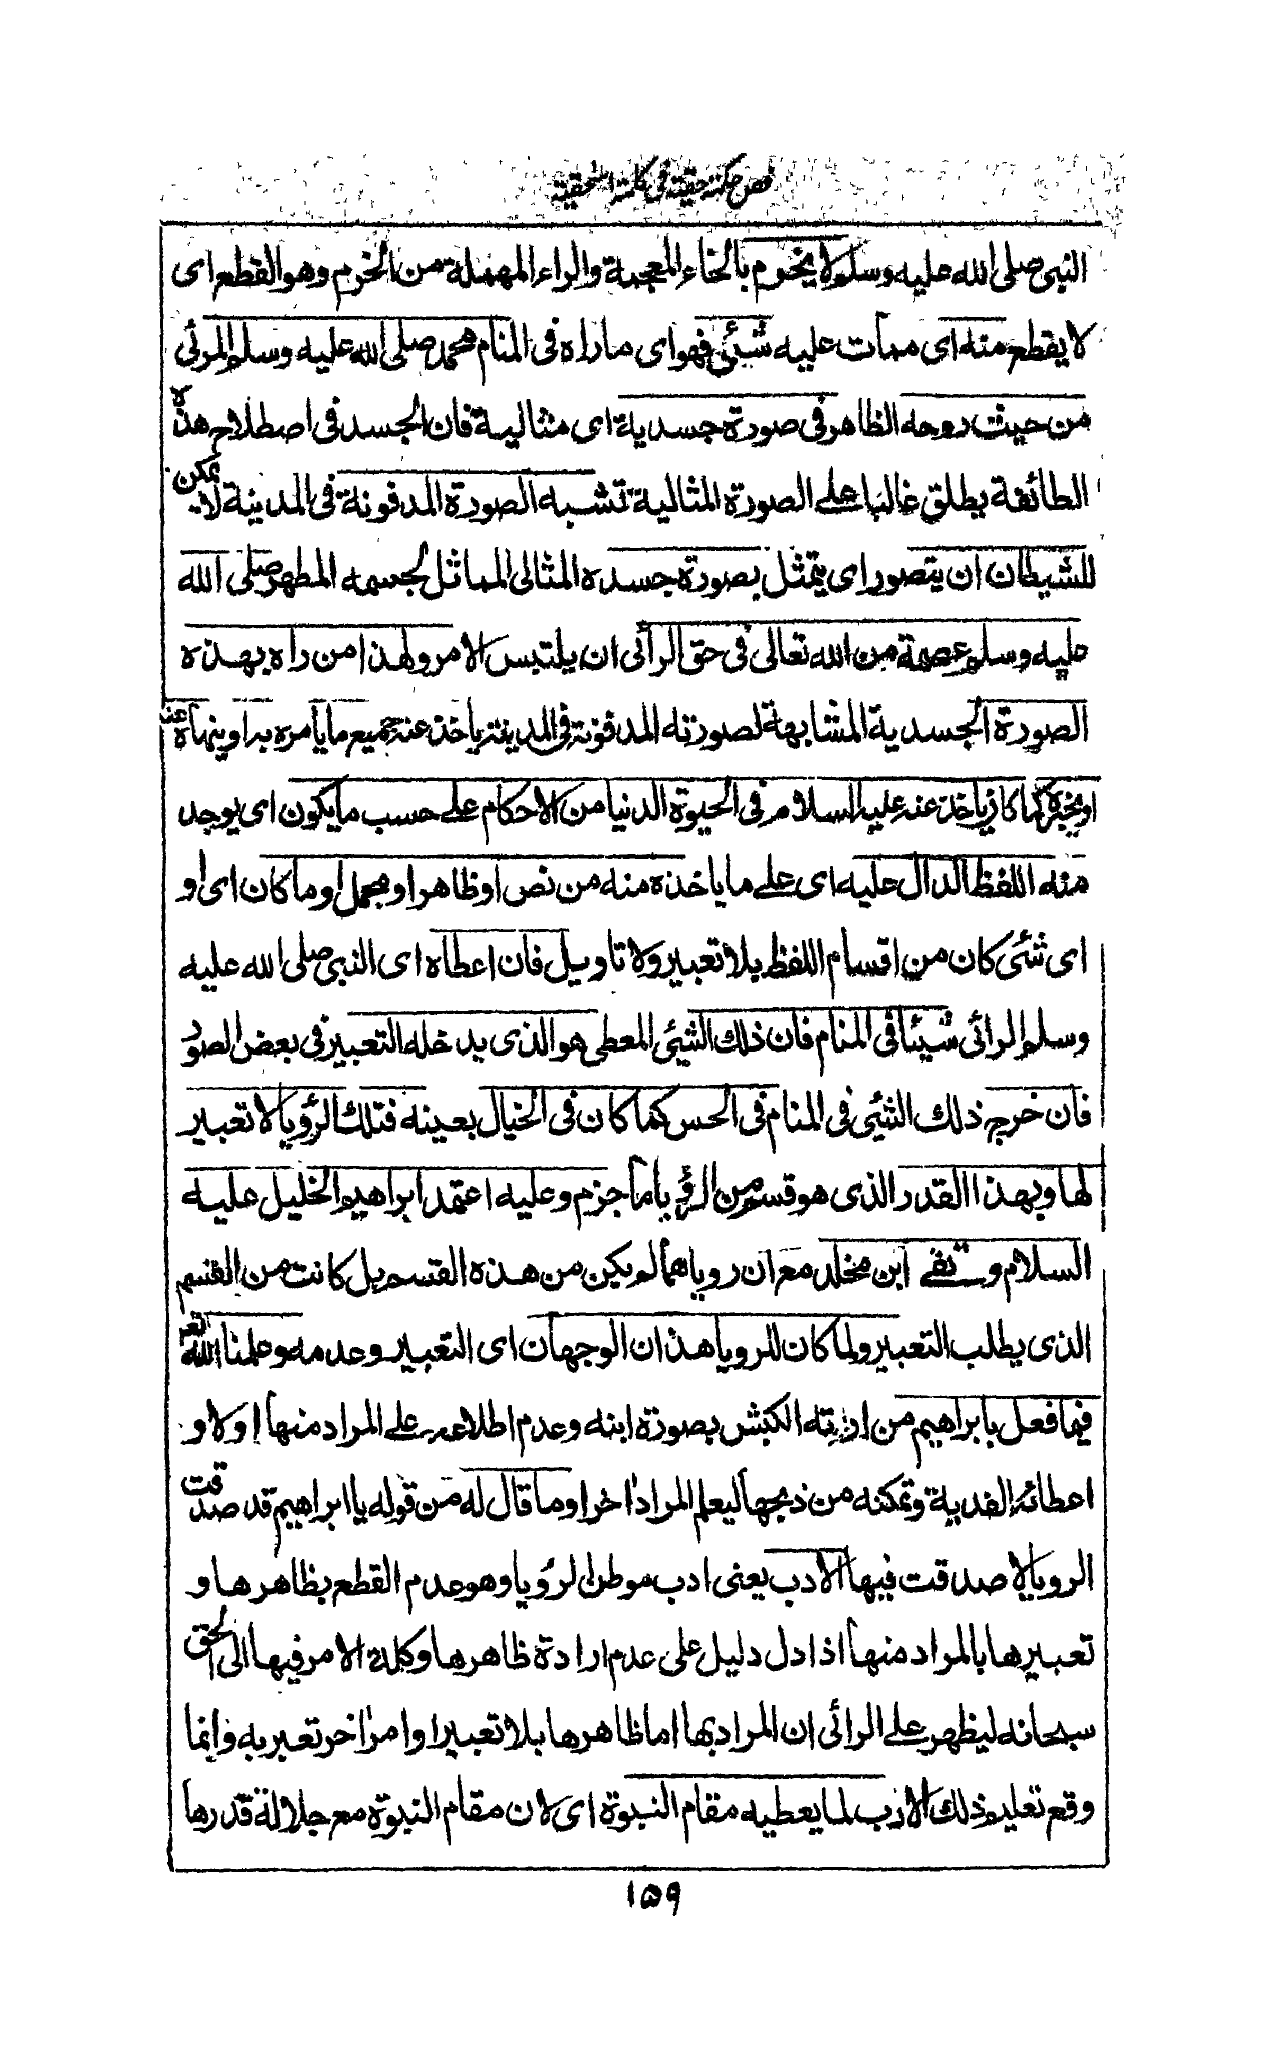 فص حكمة حقية فى كلمة اسحقية
النبى صلى الله عليه وسلم لا يخرم بالخاء المعجمة والراء المهملة من الخرم وهو القطع اى
لا يقطع منه اى مما مات عليه شئى فهو اى ما راه فى المنام محمد صلى الله عليه وسلم المرئى
من حيث روحه الظاهر فى صورة جسدية اى مثالية فان الجسد فى اصطلاح هذه
الطائفة يطلق غالبا على الصورة المثالية تشبه الصورة المدفونة فى المدينة لا يمكن
للشيطان ان يتصور اى يتمثل بصورة جسده المثالى المماثل لجسمه المطهر صلى الله
عليه وسلم عصمة من الله تعالى فى حق الرائى ان يلتبس الامر ولهذا من راه بهذه
الصورة الجسدية المشابهة لصورته المدفونة فى المدينة ياخذ عنه جميع ما يامره به او ينهاه عنه
او يخبره كما كان ياخذ عنه عليه السلام فى الحيوة الدنيا من الاحكام على حسب ما يكون اى يوجد
منه اللفظ الدال عليه اى على ما ياخذه منه من نص او ظاهر او مجمل او ما كان اى او
اى شئى كان من اقسام اللفظ بلا تعبير ولا تاويل فان اعطاه اى النبى صلى الله عليه
وسلم الرائى شيئا فى المنام فان ذلك الشئى المعطى هو الذى يدخله التعبير فى بعض الصور
فان خرج ذلك الشئى فى المنام فى الحس كما كان فى الخيال بعينه فتلك الرؤيا لا تعبير
لها وبهذا القدر الذى هو قسم من الرؤيا ما جزم وعليه اعتمد ابراهيم الخليل عليه
السلام وتقى ابن مخلد مع ان روياهما لم يكن من هذه القسم بل كانت من القسم
الذى يطلب التعبير ولما كان للرويا هذان الوجهان اى التعبير وعدمه وعلمنا الله تعـ
فيما فعل بابراهيم من اراءته الكبش بصورة ابنه وعدم اطلاعه على المراد منها اولا و
اعطائه الفدية وتمكنه من ذبحها ليعلم المراد اخرا وما قال له من قوله يا ابراهيم قد صدقت
الرويا لا صدقت فيها الادب يعنى ادب موطن الرؤيا وهو عدم القطع بظاهرها و
تعبيرها بالمراد منها اذا دل دليل على عدم ارادة ظاهرها وكلة الامر فيها الى الحق
سبحانه ليظهر على الرائى ان المراد بها اما ظاهرها بلا تعبير او امر اخر تعبر به وانما
وقع تعليم ذلك الادب لما يعطيه مقام النبوة اى لان مقام النبوة مع جلالة قدرها
١٥٩